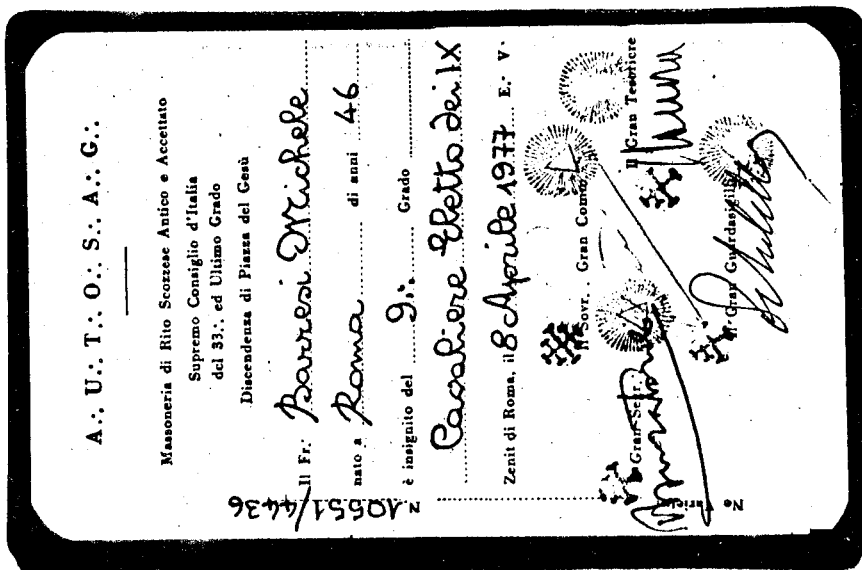 A∴ U∴ T∴ O∴ S∴ A∴ G∴
Massoneria di Rito Scozzese Antico e Accettato
Supremo Consiglio d'Italia
del 33∴ ed Ultimo Grado
Discendenza di Piazza del Gesù
Il Fr∴ Barresi Michele
nato a Roma di anni 46
è insignito del 9∴ Grado
Cavaliere Eletto dei IX
Zenit di Roma, il 8 Aprile 1977 E∴ V∴
Il Sovr∴ Gran Comm
Gran Segr
Il Gran Tesoriere
Il Gran Guardasigilli
Ne Varietur
N. 10551/4436